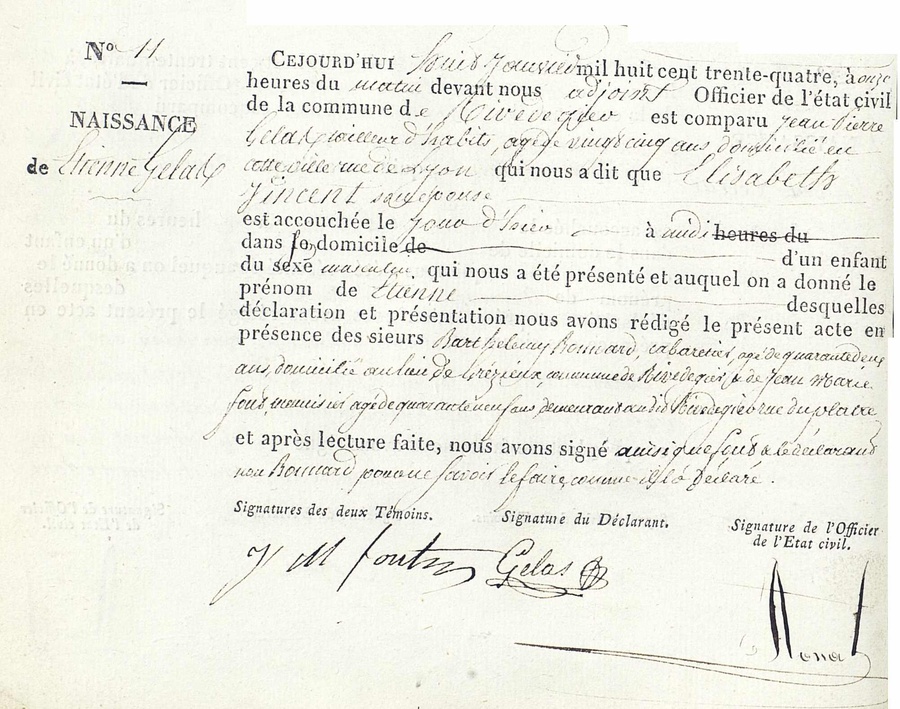 N° 11
NAISSANCE
de Etienne Gelas
CEJOURD'HUI Janvier mil huit cent trente-quatre, à onze
heures du matin devant nous adjoint Officier de l'état civil
de la commune de Rivedegier est comparu Jean Pierre
Gelas tailleur d'habits, agé de vingt cinq ans domicilié en
cette ville rue de Lyon qui nous a dit que Elisabeth
Vincent son épouse
est accouchée le jour d'hier à midi heures du
dans son domicile de d'un enfant
du sexe masculin qui nous a été présenté et auquel on a donné le
prénom de Etienne desquelles
déclaration et présentation nous avons rédigé le présent acte en
présence des sieurs Barthelemy Bonnard, cabaretier, agé de quarante deux
ans, domicilié au lieu de commune de Rivedegier & de Jean Marie
agé de quarante neuf ans demeurant audit Rivedegier rue du platre
et après lecture faite, nous avons signé ainsi que & le déclarant
non Bonnard pour ne savoir le faire, comme il l'a déclaré.
Signatures des deux Témoins. Signature du Déclarant. Signature de l'Officier
de l'Etat civil.
J M Gelas